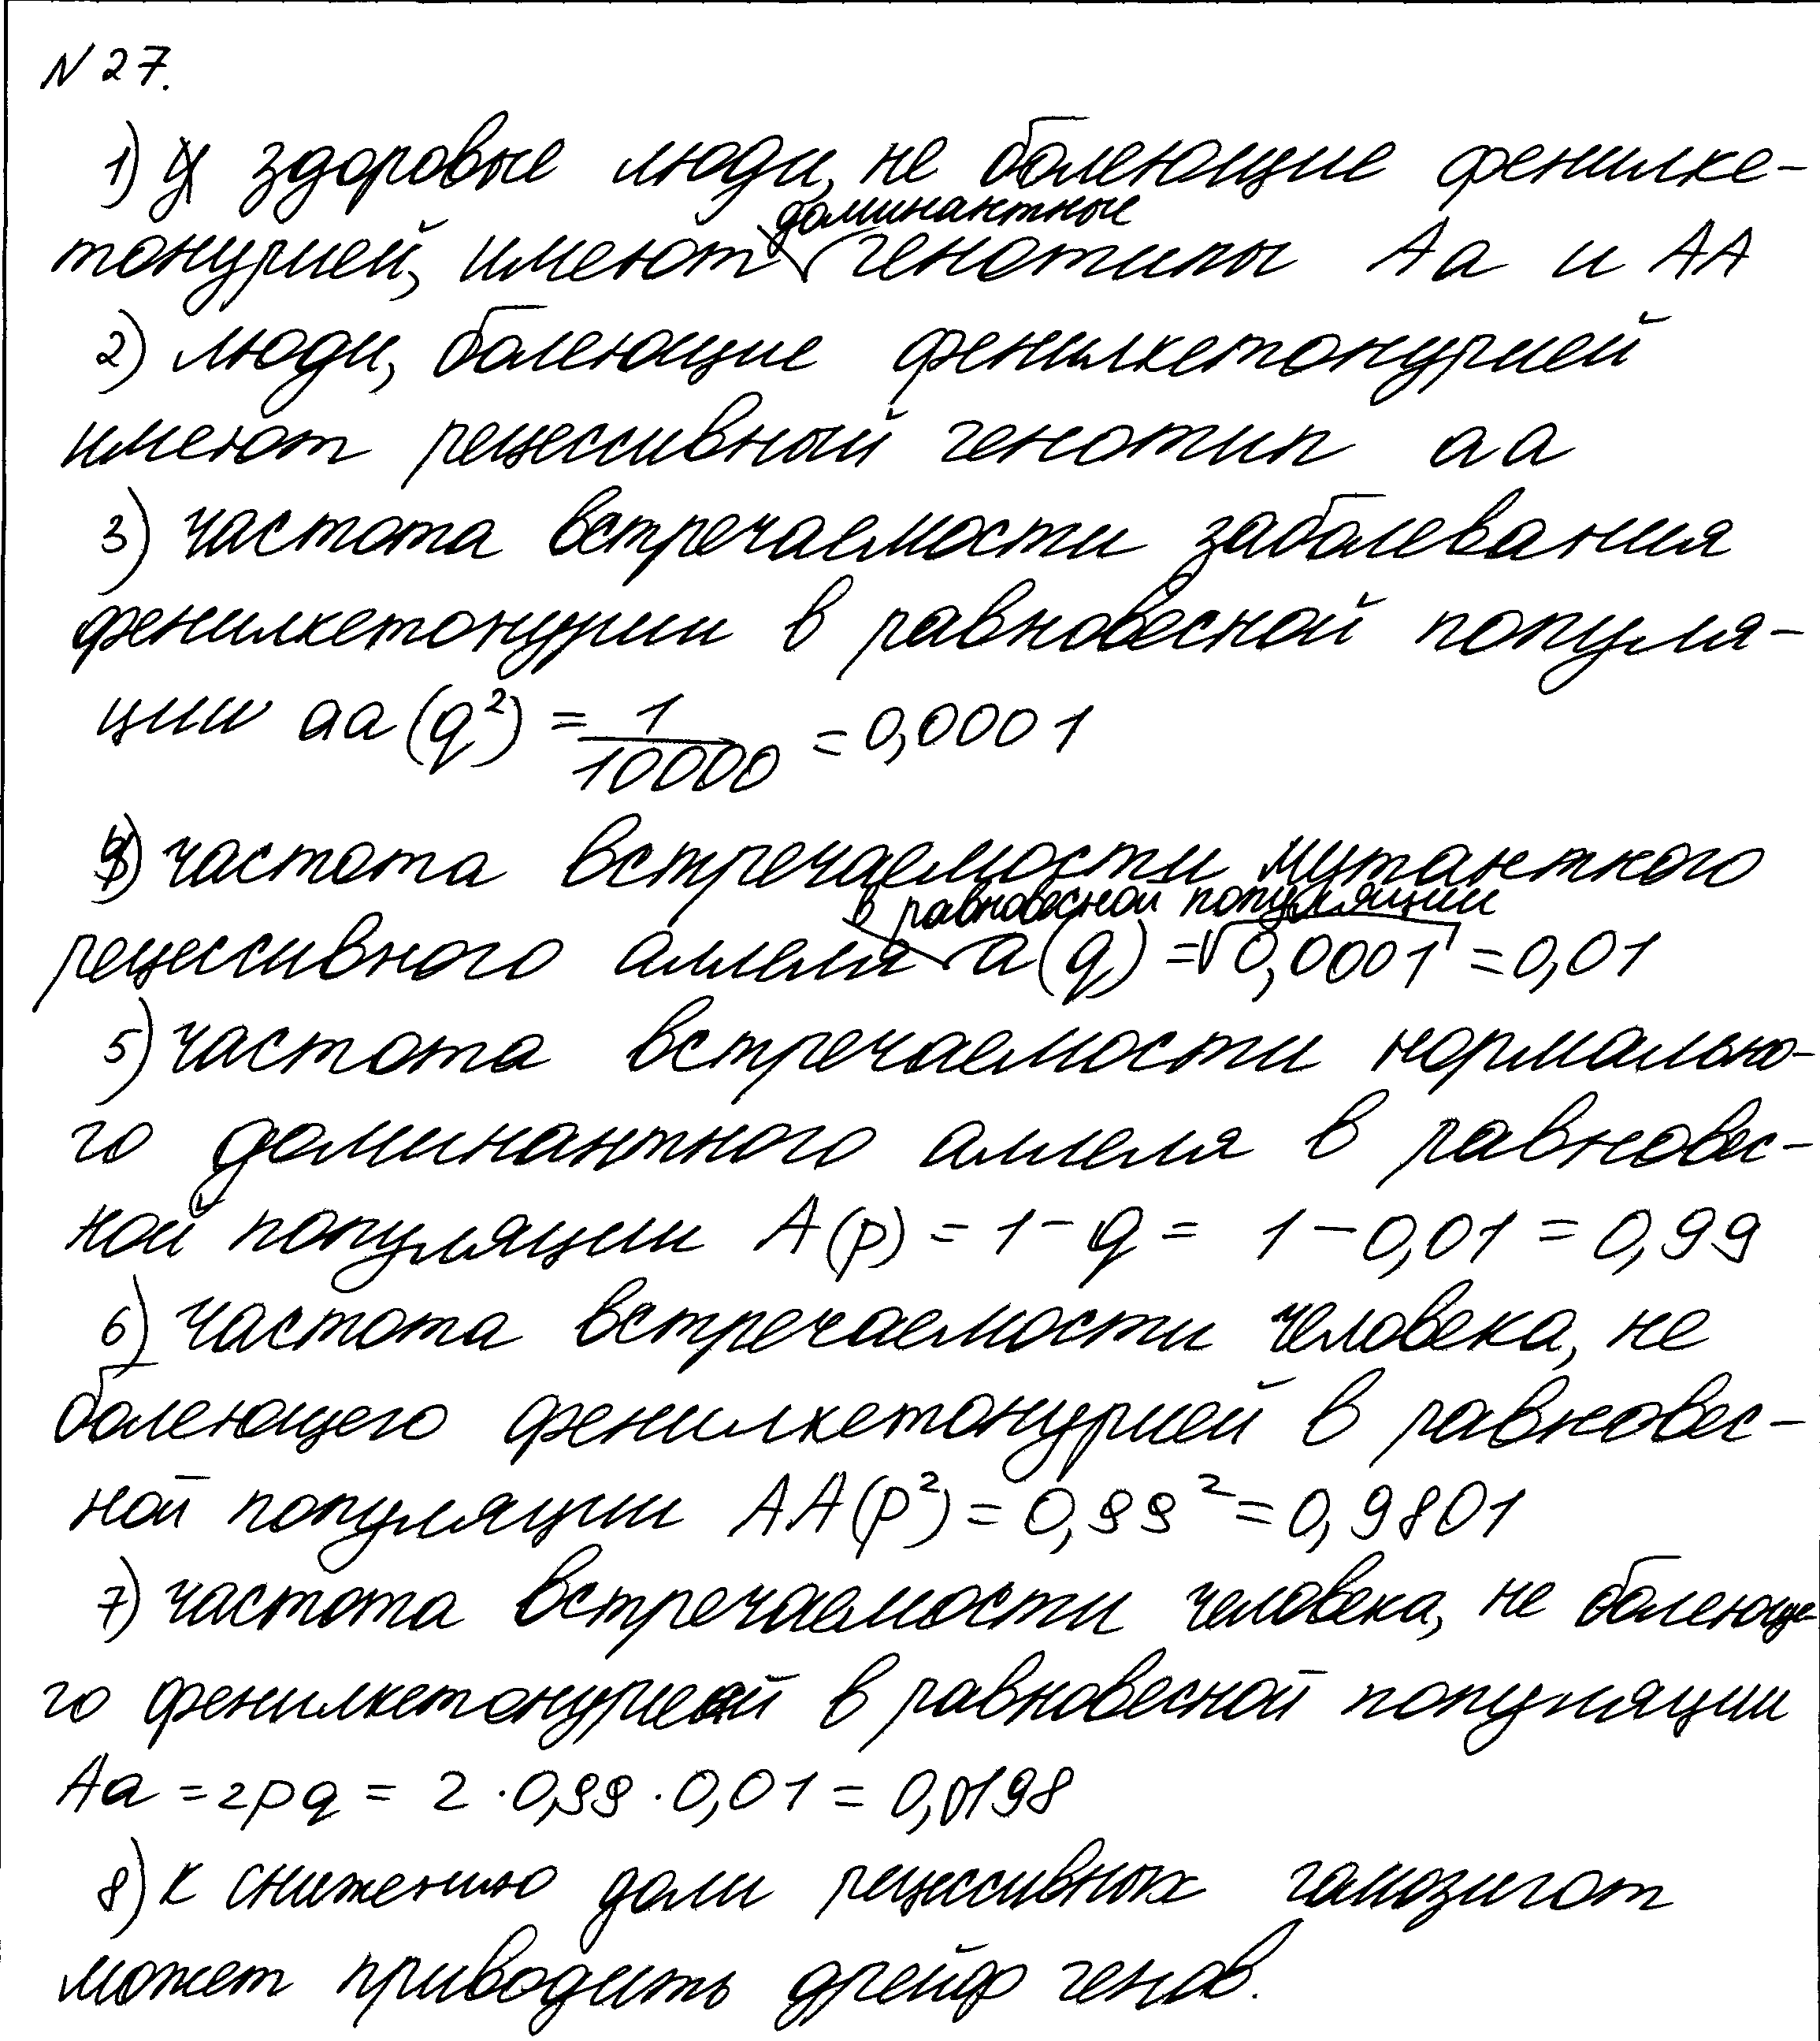 N 27.
1) здоровые люди, не болеющие фенилке-
доминантные
тонурией, имеют генотипы Аа и АА
2) люди, болеющие фенилкетонурией
имеют рецессивный генотип аа
3) частота встречаемости заболевания
фенилкетонурии в равновесной популя-
ции аа (q²) = 1/10000 = 0,0001
4) частота встречаемости мутантного
в равновесной популяции
рецессивного аллеля а(q) = √0,0001 = 0,01
5) частота встречаемости нормально-
го доминантного аллеля в равновес-
ной популяции А(р) = 1 - q = 1 - 0,01 = 0,99
6) частота встречаемости человека, не
болеющего фенилкетонурией в равновес-
ной популяции АА(р²) = 0,99² = 0,9801
7) частота встречаемости человека, не болеюще-
го фенилкетонурией в равновесной популяции
Аа = 2pq = 2 · 0,99 · 0,01 = 0,0198
8) к снижению доли рецессивных гомозигот
может приводить дрейф генов.